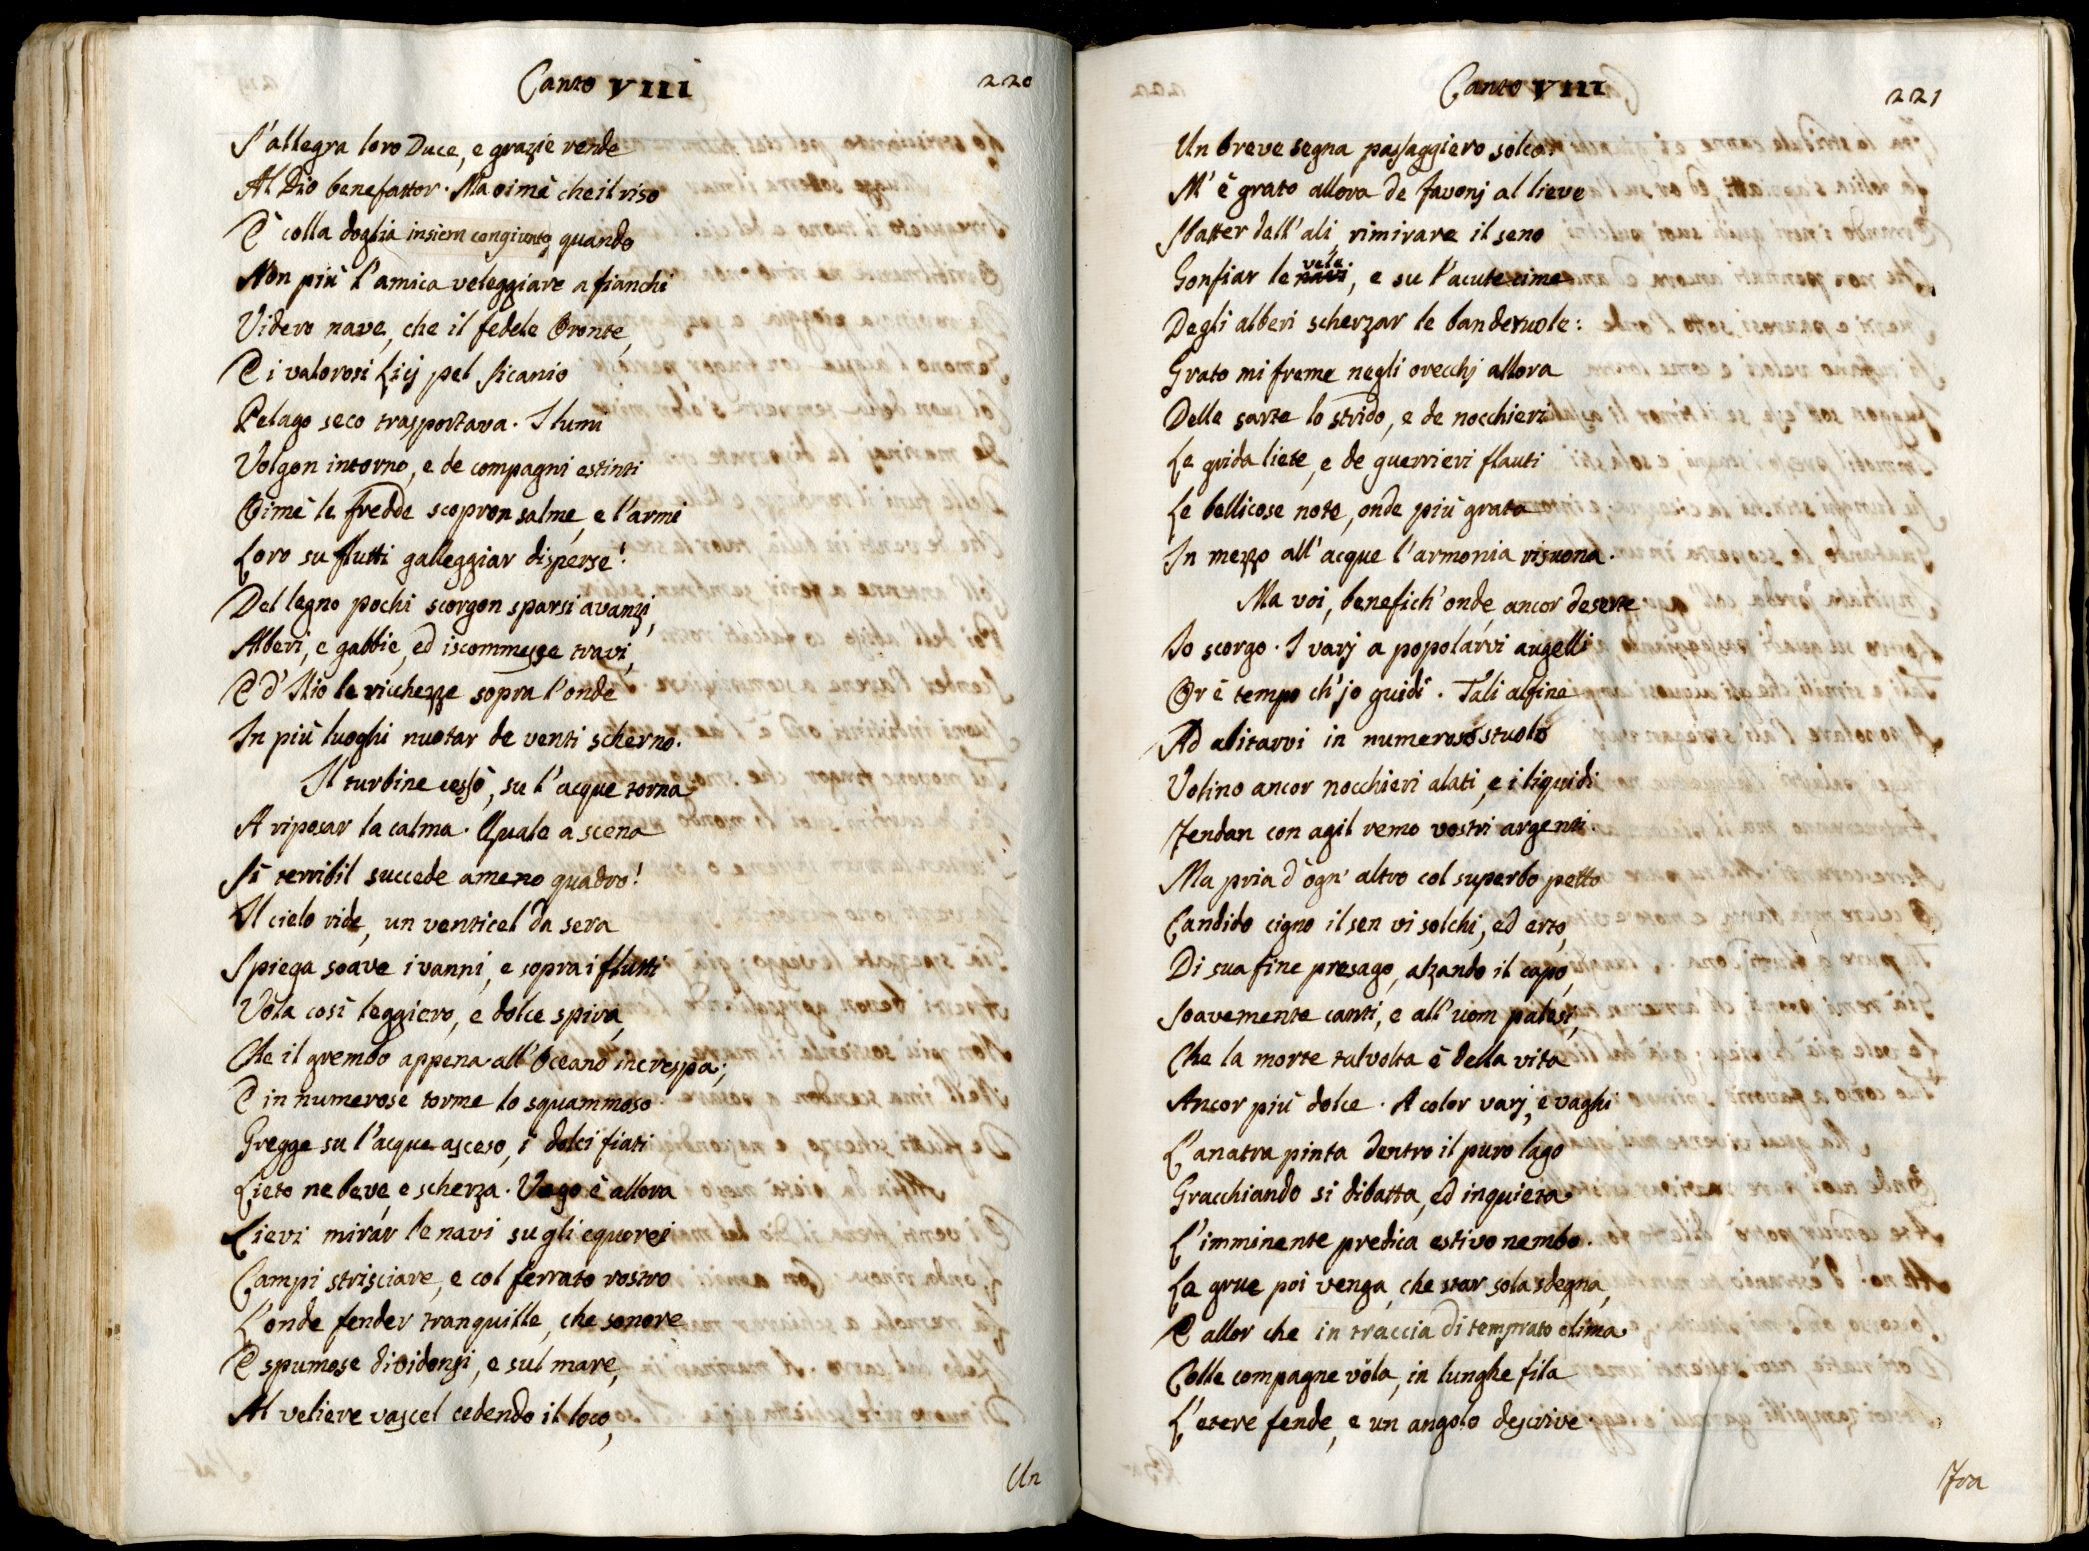 Canto VIII
220
S'allegra loro Duce, e grazie rende
Al Dio benefattor. Ma oimè che il riso
È colla doglia insiem congiunto, quando
Non più l'amica veleggiare a fianchi
Videro nave, che il fedele Oronte,
E i valorosi Licj pel sicanio
Pelago seco trasportava. I lumi
Volgon intorno, e de compagni estinti
Oimè le fredde scopron salme, e l'armi
Loro su flutti galleggiar disperse!
Del legno pochi scorgon sparsi avanzi,
Alberi, e gabbie, ed iscommesse travi,
E d'Ilio le ricchezze sopra l'onde
In più luoghi nuotar de venti scherno.
Il turbine cessò, su l'acque torna
A riposar la calma. Quale a scena
Sì terribil succede ameno quadro!
Il cielo ride, un venticel da sera
Spiega soave i vanni, e sopra i flutti
Vola così leggiero, e dolce spira,
Che il grembo appena all'Oceano increspa;
E in numerose torme lo squammoso
Gregge su l'acque asceso, i dolci fiati
Lieto ne beve, e scherza. Vago è allora
Lievi mirar le navi su gli equorei
Campi strisciare, e col ferrato rostro
L'onde fender tranquille, che sonore
E spumose dividonsi, e sul mare,
Al veliere vascel cedendo il loco,
Un
Canto VIII
221
Un breve segna passaggiero solco.
M'è grato allora de favonj al lieve
Sbatter dell'ali, rimirare il seno
vele
Gonfiar le navi, e su l'acute cime
Degli alberi scherzar le banderuole:
Grato mi freme negli orecchj allora
Delle sarte lo strido, e de nocchieri
Le grida liete, e de guerrieri flauti
Le bellicose note, onde più grata
In mezzo all'acque l'armonia risuona.
Ma voi, benefich'onde, ancor deserte
Io scorgo. I varj a popolarvi augelli
Or è tempo ch'jo guidi. Tali alfine
Ad abitarvi in numeroso stuolo
Volino ancor nocchieri alati, e i liquidi
Fendan con agil remo vostri argenti.
Ma pria d'ogn'altro col superbo petto
Candido cigno il sen vi solchi, ed erto,
Di sua fine presago, alzando il capo,
Soavemente canti, e all'uom palesi,
Che la morte talvolta è della vita
Ancor più dolce. A color varj, e vaghi
L'anatra pinta dentro il puro lago
Gracchiando si dibatta, ed inquieta
L'imminente predica estivo nembo.
La grue poi venga, che star sola sdegna,
E allor che in traccia di temprato clima
Colle compagne vola, in lunghe fila
L'etere fende, e un angolo descrive.
Fra